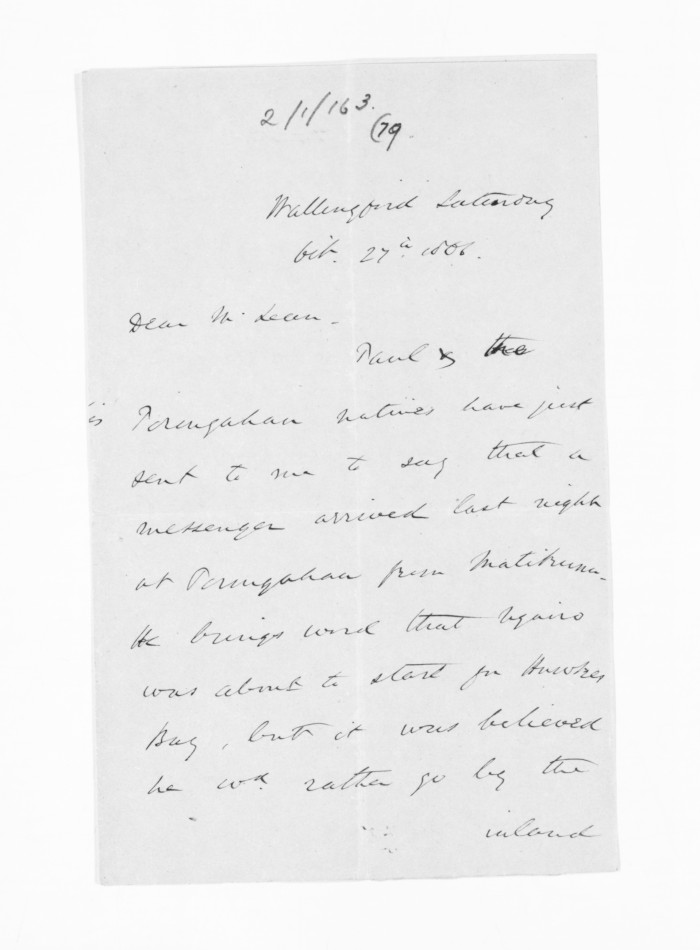 2/1/163.
(79.
Wallingford Saturday
Oct. 27th 1866.
Dear McLean -
Paul's the
Porongahau natives have just
sent to me to say that a
messenger arrived last night
at Porongahau from Matikuna -
He brings word that Ngairo
was about to start for Hawkes
Bay, but it was believed
he wd. rather go by the
inland